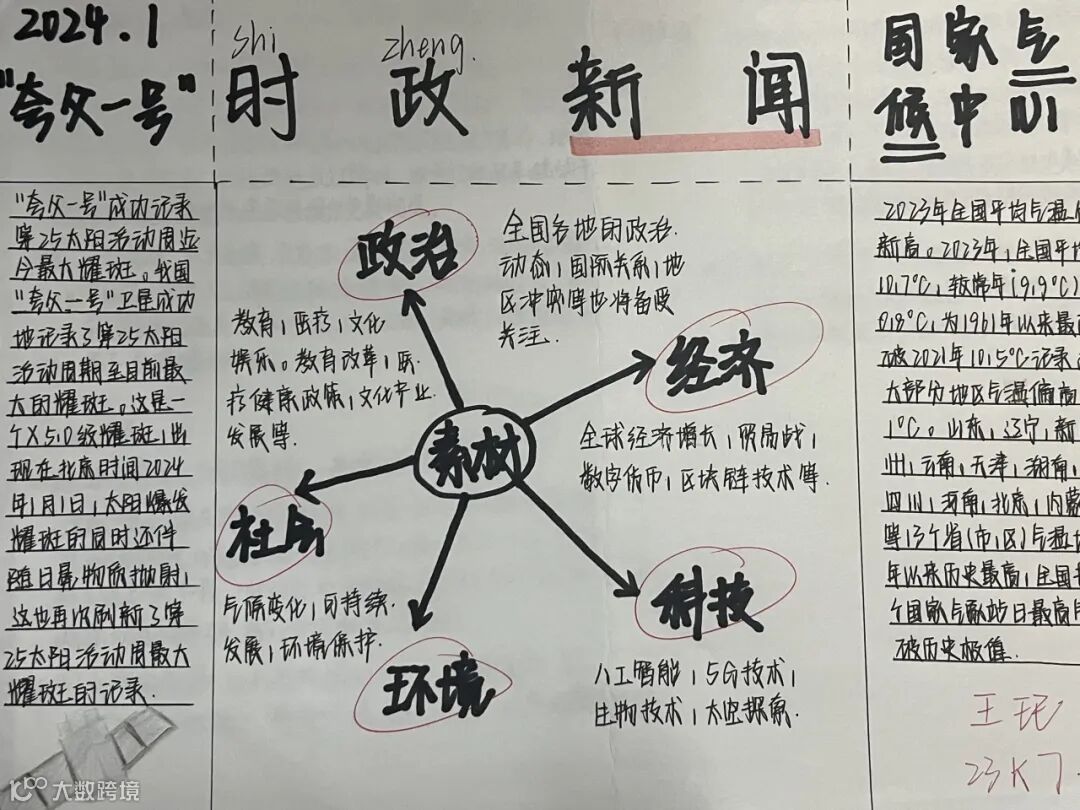 2024.1
"夸父一号"
shi zheng
时政新闻
国家气
候中心
"夸父一号"成功记录
第25太阳活动周迄
今最大耀斑。我国
"夸父一号"卫星成功
地记录了第25太阳
活动周期至目前最
大的耀斑。这是一
个X5.0级耀斑,出
现在北京时间2024
年1月1日,太阳爆发
耀斑的同时还伴
随日冕物质抛射,
这也再次刷新了第
25太阳活动周最大
耀斑的记录.
政治
全国各地的政治.
动态,国际关系,地
区冲突等也将备受
关注.
教育,医疗,文化
娱乐。教育改革,医.
疗健康政策,文化产业.
发展等.
经济
素材
全球经济增长,贸易战,
数字货币,区块链技术等.
社会
气候变化,可持续.
发展,环境保护.
环境
科技
人工智能,5G技术,
生物技术,太空探索.
2023年全国平均气温
新高。2023年,全国平均
10.7℃,较常年(9.9℃)
0.8℃,为1961年以来最
破2021年10.5℃记录
大部分地区气温偏高
1℃。山东,辽宁,新
州,云南,天津,湖南,
四川,河南,北京,内蒙
等13个省(市,区)气温
年以来历史最高,全国
个国家气象站日最高
破历史极值.
23K
大数跨境